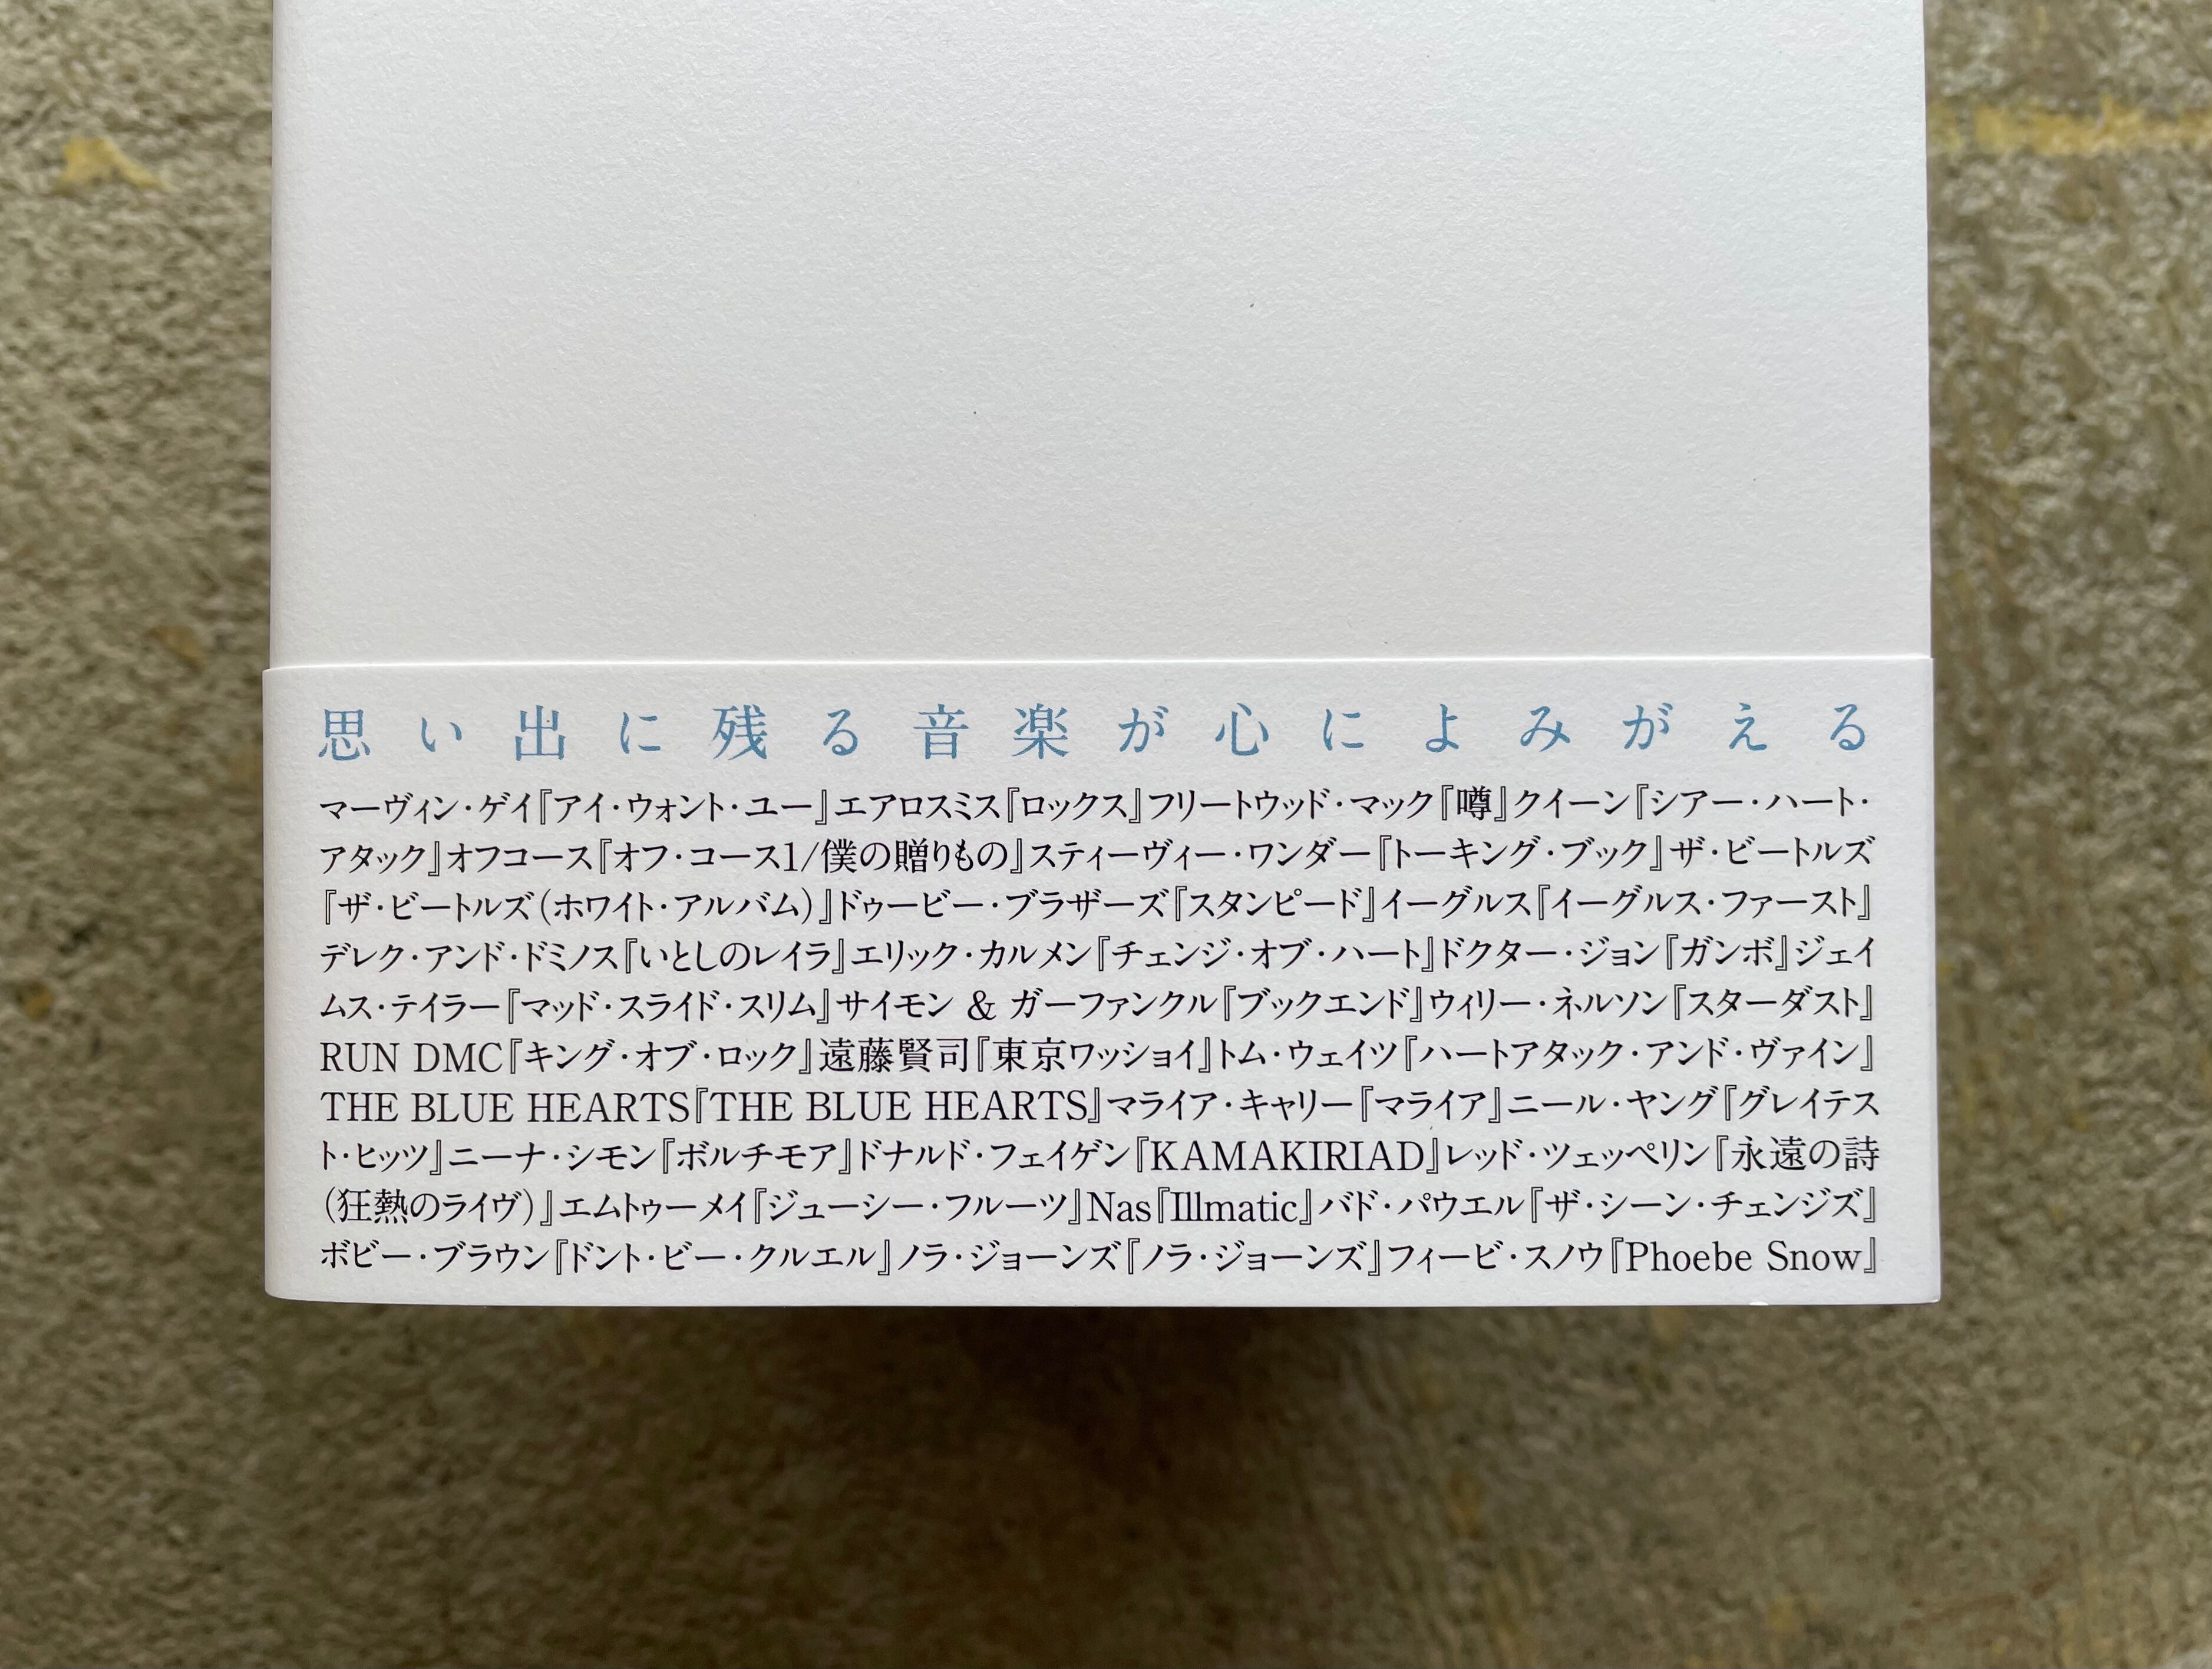 思い出に残る音楽が心によみがえる
マーヴィン・ゲイ『アイ・ウォント・ユー』エアロスミス『ロックス』フリートウッド・マック『噂』クイーン『シアー・ハート・
アタック』オフコース『オフ・コース1/僕の贈りもの』スティーヴィー・ワンダー『トーキング・ブック』ザ・ビートルズ
『ザ・ビートルズ(ホワイト・アルバム)』ドゥービー・ブラザーズ『スタンピード』イーグルス『イーグルス・ファースト』
デレク・アンド・ドミノス『いとしのレイラ』エリック・カルメン『チェンジ・オブ・ハート』ドクター・ジョン『ガンボ』ジェイ
ムス・テイラー『マッド・スライド・スリム』サイモン & ガーファンクル『ブックエンド』ウィリー・ネルソン『スターダスト』
RUN DMC『キング・オブ・ロック』遠藤賢司『東京ワッショイ』トム・ウェイツ『ハートアタック・アンド・ヴァイン』
THE BLUE HEARTS『THE BLUE HEARTS』マライア・キャリー『マライア』ニール・ヤング『グレイテス
ト・ヒッツ』ニーナ・シモン『ボルチモア』ドナルド・フェイゲン『KAMAKIRIAD』レッド・ツェッペリン『永遠の詩
(狂熱のライヴ)』エムトゥーメイ『ジューシー・フルーツ』Nas『Illmatic』バド・パウエル『ザ・シーン・チェンジズ』
ボビー・ブラウン『ドント・ビー・クルエル』ノラ・ジョーンズ『ノラ・ジョーンズ』フィービ・スノウ『Phoebe Snow』